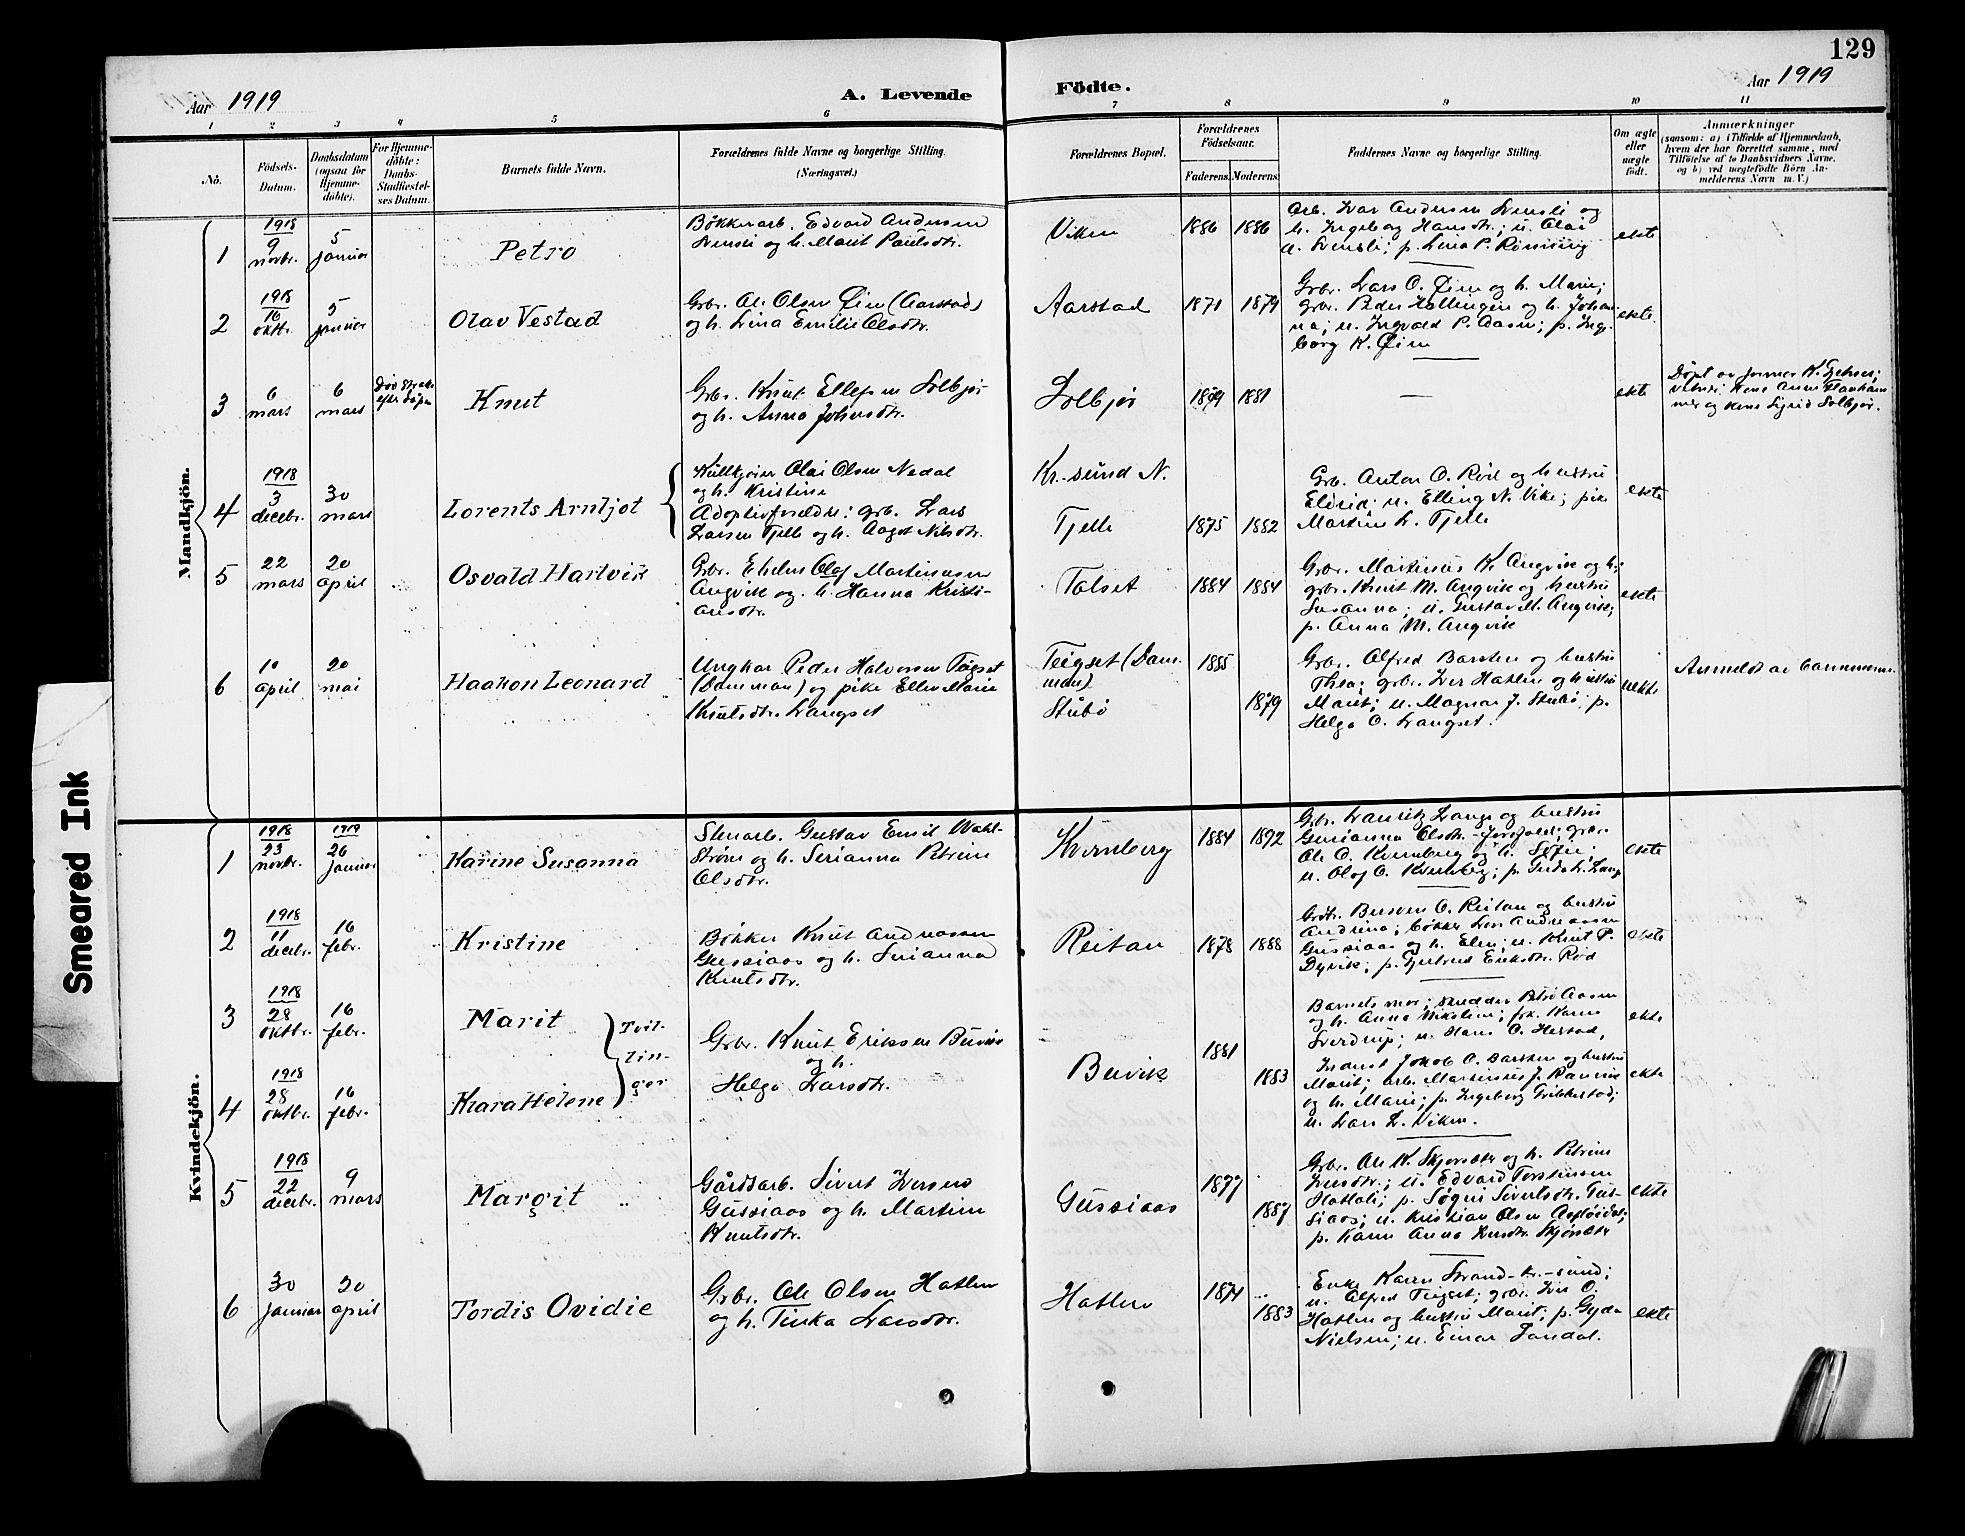 129
Aar 1919
A. Levende
Födte.
Aar 1919
1 2 3 4 5 6 7 8 9 10 11
No.
Födsels-
Datum.
Daabsdatum
(ogsaa for
Hjemme-
döbte).
For Hjemme-
döbte:
Daabs-
Stadfæstel-
ses Datum.
Barnets fulde Navn.
Forældrenes fulde Navne og borgerlige Stilling.
(Næringsvei.)
Forældrenes Bopæl.
Forældrenes
Födselsaar.
Faderens. Moderens.
Faddernes Navne og borgerlige Stilling.
Om ægte
eller
uægte
födt.
Anmærkninger
(saasom: a) i Tilfælde af Hjemmedaab,
hvem der har forrettet samme, med
Tilföielse af to Daabsvidners Navne,
og b) ved uægtefödte Börn An-
melderens Navn m. V.)
Mandkjön.
1
1918
9
novbr.
5
januar
Petro
Bøkkerarb. Edvard Andersen
og h. Marit Paulsdtr.
Viken
1886 1886
Arb. Ivar Andersen og
h. Ingeborg Hansdtr.; u. Olai
p. Lina P. Rönning
ekte
2
1918
16
oktbr.
5
januar
Olav Vestad
Grbr. Ole Olsen Øien (Aarstad)
og h. Lina Emilie Olsdtr.
Aarstad
1871 1879
Grbr. Lars O. Øien og h. Marie;
grbr. Peder Hollingen og h. Johan-
na; u. Ingvald P. Aasen; p. Inge-
borg K. Øien
ekte.
3
6
mars
6
mars
Död straks
efter dåpen
Knut
Grbr. Knut Ellefsen Solbjør
og h. Anna Johnsdtr.
Solbjør
1879 1881
ekte
Döpt av
og Sigrid Solbjør.
4
1918
3
decbr.
30
mars
Lorents Arnljot
Kullkjører Olai Olsen Nedal
og h. Kristine
Adoptivforældre: grb. Lars
Larsen Tjelle og h. Aagot Nilsdtr.
Kr.-sund N.
Tjelle
1875 1882
Grb. Anton O. Rød og hustru
Eldrid; u. Elling N. Vike; pike
Martine L. Tjelle
ekte
5
22
mars
20
april
Osvald Hartvik
Grbr. Olof Martinussen
Angvik og h. Hanna Kristi-
ansdtr.
Talset
1884 1884
Grbr. Martinus K. Angvik og h.;
grbr. Knut M. Angvik og hustru
Susanna; u. Gustav M. Angvik;
p. Anna M. Angvik
ekte
6
10
april
20
mai
Haakon Leonard
Ungkar Peder Halvorsen Teigset
(Danman) og pike Ellen Marie
Knutsdtr. Langset
Teigset (Dan-
man)
Stubö
1885
1879
Grbr. Alfred Barsten og hustru
Thea; grbr. Iver Hatlen og hustru
Marit; u. Magnar J. Stubö; p.
Helga O. Langset.
uekte
Anmeldt av barnemoren.
Kvindekjön.
1
1918
23
novbr.
1919
26
januar
Karine Susanna
Stenarb. Gustav Emil Wahl-
strøm og h. Serianna Petrine
Olsdtr.
Kvernberg
1884 1892
Grbr. Lauritz Lange og hustru
Gurianna Olsdtr. grbr.
Ole O. Kvernberg og h. Sofie;
u. Olof O. Kvernberg; p.
ekte
2
1918
11
decbr.
16
febr.
Kristine
Bøkker Knut Andreassen
Gussiaas og h. Serianna
Knutsdtr.
Reitan
1878 1888
O. Reitan og hustru
Andrina; bøkker Andreassen
Gussiaas og h. Elen; u. Knut P.
Dyvik; p. Gjertrud Eriksdtr. Rød
ekte
3
1918
28
oktbr.
16
febr.
Marit
Tvil-
lin-
ger
Grbr. Knut Eriksen Buvik
og h.
Helga Larsdtr.
Buvik
1881
1883
Barnets mor; skrædder Aasen
og h. Anna Nikoline; frk. Karen
Sverdrup; u. Hans O. Herstad,
ekte
4
1918
28
oktbr.
16
febr.
Klara Helene
Jakob O. Barsten og hustru
Marit; arb. Martinius J.
og h. Marie; p. Ingeborg
u. Lars L. Viken.
ekte
5
1918
22
decbr.
9
mars
Margit
Gårdsarb. Sivert Iversen
Gussiaas og h. Martine
Knutsdtr.
Gussiaas
1877
1887
Grbr. Ole K. Skjørsæter og h. Petrine
Iversdtr.; u. Edvard Torstensen
Hatleli; p. Søgni Sivertsdtr. Gus-
siaas; u. Kristian Olsen
p. Karen Anna Iversdtr. Skjørsæter
ekte
6
30
januar
20
april
Tordis Ovidie
Grbr. Ole Olsen Hatlen
og h. Tinka Larsdtr.
Hatlen
1874
1883
Enke Karen Strand – Kr.-sund;
u. Alfred Teigset; grbr. Iver O.
Hatlen og hustru Marit; p. Gyda
Nielsen; u. Einar Sandal.
ekte
Smeared Ink